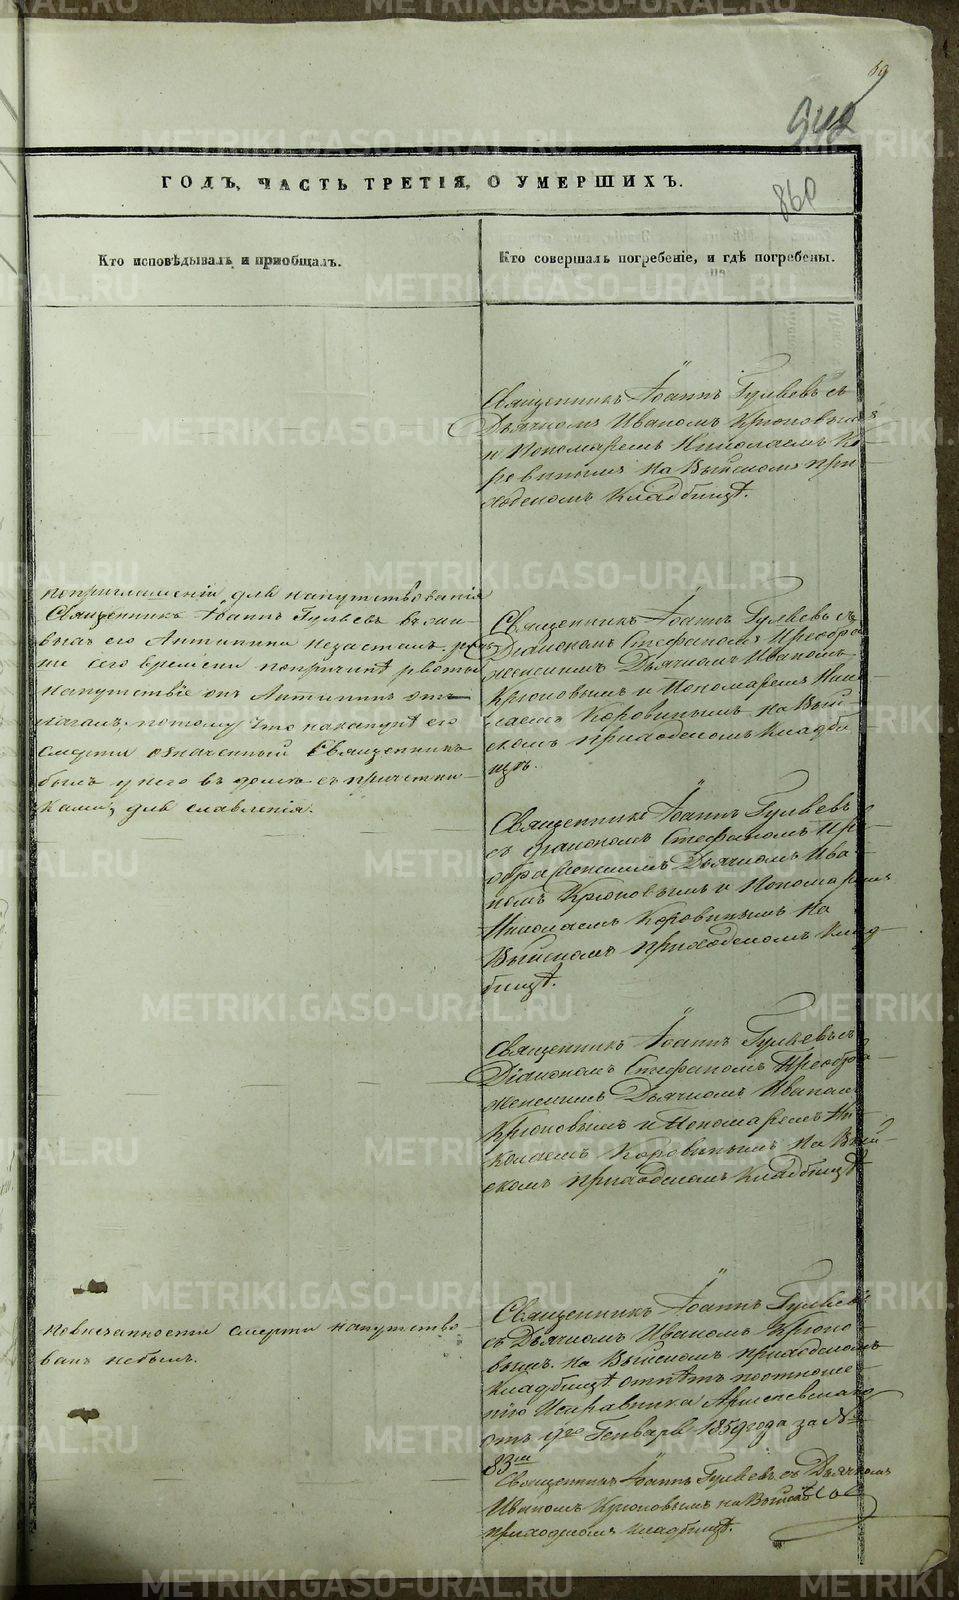 59
942
860
ГОДЪ, ЧАСТЬ ТРЕТІЯ, О УМЕРШИХЪ.
Кто исповѣдывалъ и пріобщалъ.
Кто совершалъ погребеніе, и гдѣ погребены.
Священникъ Іоаннъ Гуляевъ съ
Дьячкомъ Иваномъ Крюковымъ
и Пономаремъ Николаемъ Ко-
ровинымъ на Выйскомъ при-
ходскомъ Кладбищѣ.
поприглашеніи для напутствованія
Священникъ Іоаннъ Гуляевъ въ жи-
выхъ его Антипина незасталъ,
сего времени попричинѣ рвоты
напутствіе онъ Антипинъ отъ
лагалъ, потому что наканунѣ его
смерти означенный Священникъ
былъ у него въ домѣ съ причетни-
ками, для славленія.
Священникъ Іоаннъ Гуляевъ съ
Діакономъ Стефаномъ Преобра-
женскимъ Дьячкомъ Иваномъ
Крюковымъ и Пономаремъ Нико-
лаемъ Коровинымъ на Вый
скомъ приходскомъ кладби-
щѣ.
Священникъ Іоаннъ Гуляевъ
съ діакономъ Стефаномъ Пре-
ображенскимъ Дьячкомъ Ива-
номъ Крюковымъ и Пономаремъ
Николаемъ Коровинымъ на
Выйскомъ приходскомъ Клад-
бищѣ.
Священникъ Іоаннъ Гуляевъ съ
Діакономъ Стефаномъ Преобра-
женскимъ Дьячкомъ Иваномъ
Крюковымъ и Пономаремъ Ни-
колаемъ Коровинымъ на Вый-
скомъ приходскомъ кладбищѣ
повнезапности смерти напутство-
ванъ небылъ.
Священникъ Іоаннъ Гуляевъ
съ Дьячкомъ Иваномъ Крюко-
вымъ на Выйскомъ приходскомъ
Кладбищѣ отпѣтъ поотноше-
нію Исправника
отъ Генваря 1859 года за №
83мъ
Священникъ Іоаннъ Гуляевъ съ Дьячкомъ
Иваномъ Крюковымъ на Выйскомъ
приходскомъ кладбищѣ.
METRIKI.GASO-URAL.RU